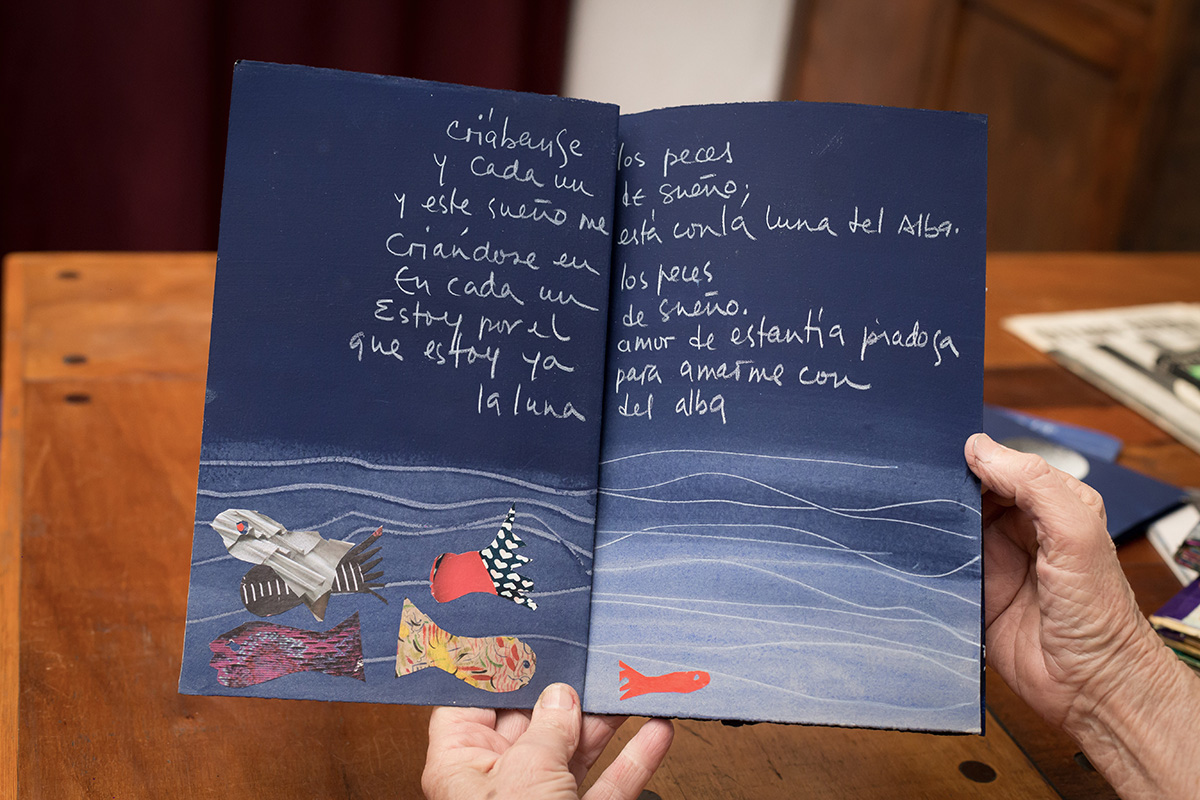 criábanse los peces
y cada un de sueño;
y este sueño me está con la luna del Alba.
Criándose en los peces
En cada un de sueño.
Estoy por el amor de estantía piadosa
que estoy ya para amarme con
la luna del alba